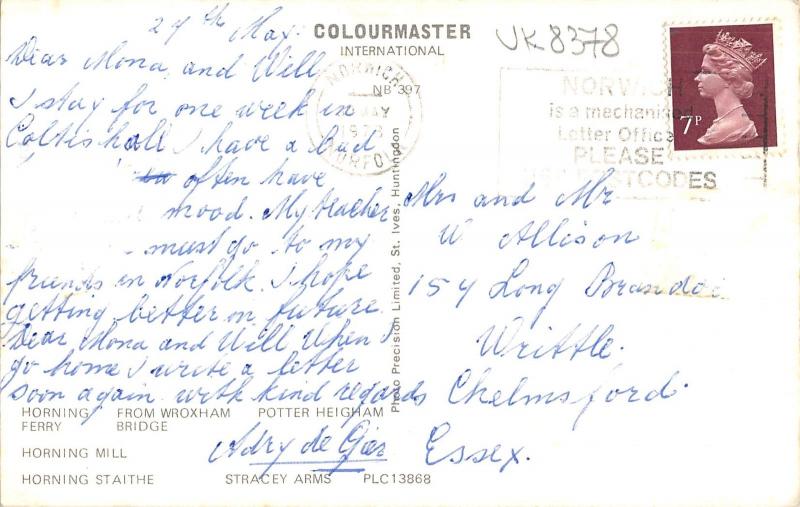 COLOURMASTER
INTERNATIONAL
NB 397
UK8378
27th May:
Dear Mona and Will
I stay for one week in
Coltishall I have a bad
often have
mood. My teacher
must go to my
friends in Norfolk. I hope
getting better on future.
Dear Mona and Will When I
go home I write a letter
soon again with kind regards
Adry de Gier
NORWICH
MAY
NORFOLK
NORWICH
is a mechanised
Letter Office
PLEASE
POSTCODES
7P
Mrs and Mr
W Allison
154 Long
Writtle.
Chelmsford.
Essex.
Photo Precision Limited, St. Ives, Huntingdon
HORNING FROM WROXHAM POTTER HEIGHAM
FERRY BRIDGE
HORNING MILL
HORNING STAITHE STRACEY ARMS PLC13868